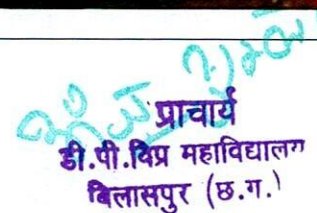 प्राचार्य
डी.पी.विप्र महाविद्यालय
बिलासपुर (छ.ग.)